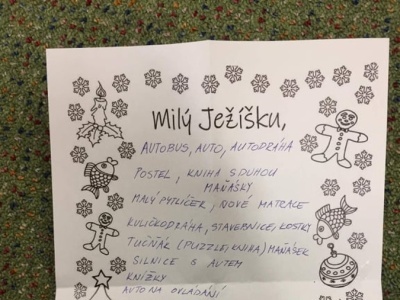 Milý Ježíšku,
AUTOBUS, AUTO, AUTODRÁHA
POSTEL, KNIHA S DUHOU
MAŇÁSKY
MALÝ PYTLÍČEK, NOVÉ MATRACE
KULIČKODRÁHA, STAVEBNICE, KOSTKY
TUČŇÁK (PUZZLE, KNIHA) MAŇÁSEK
SILNICE S AUTEM
KNÍŽKY
AUTO NA OVLÁDÁNÍ